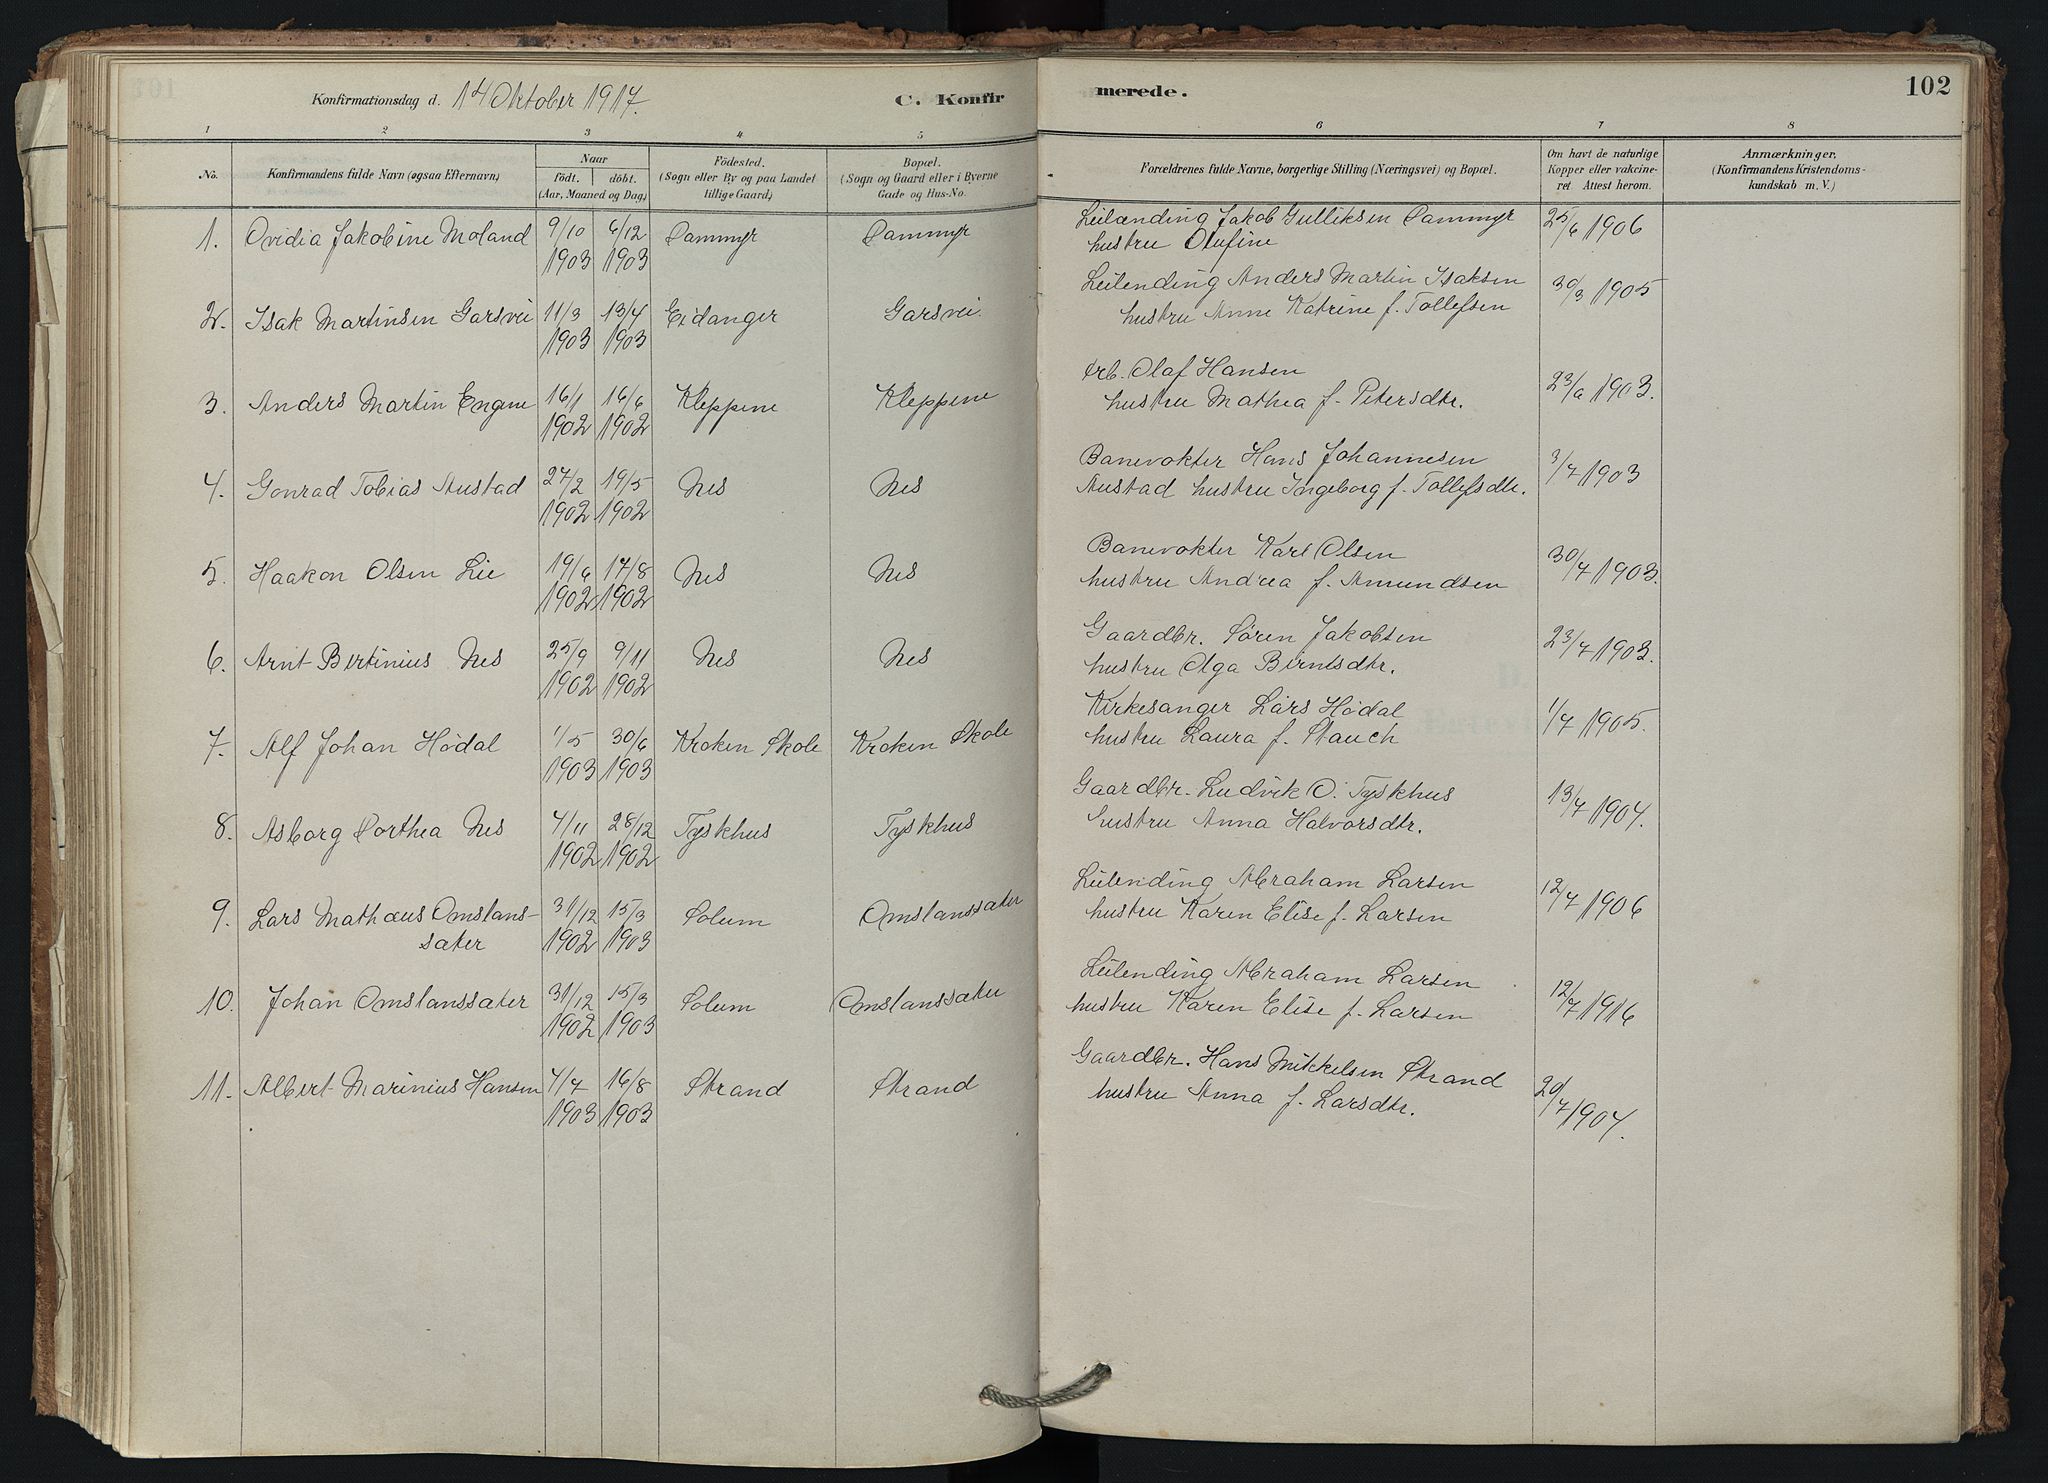 Konfirmationsdag d. 14 Oktober 1917.
C. Konfir
merede.
102
1 2 3 4 5 6 7 8
No.
Konfirmandens fulde Navn (ogsaa Efternavn.)
Naar
födt. döbt.
(Aar, Maaned og Dag.)
Födested.
(Sogn eller By og paa Landet
tillige Gaard.)
Bopæl.
(Sogn og Gaard eller i Byerne
Gade og Hus-No.
Forældrenes fulde Navne, borgerlige Stilling (Næringsvei) og Bopæl.
Om havt de naturlige
Kopper eller vakcine-
ret Attest herom.
Anmærkninger.
(Konfirmandens Kristendoms-
kundskab m. V.)
1. Ovidia Jakobine Moland 9/10 6/12 Dammyr Dammyr Leilænding Jakob Gulliksen Dammyr 25/6 1906
1903 1903 hustru Olufine
2. Isak Martinsen Garsvei 11/3 13/4 Eidanger Garsvei. Leilending Anders Martin Isaksen 30/3 1905
1903 1903 hustru Anne Katrine f. Tollefsen
3. Anders Martin Engene 16/1 16/6 Kleppene Kleppene Arb. Olaf Hansen 23/6 1903.
1902 1902 hustru Mathea f. Petersdtr.
4. Gonrad Tobias Austad 27/2 19/5 Nes Nes Banevokter Hans Johannesen 3/7 1903
1902 1902 Austad hustru Ingeborg f. Tollefsdtr.
5. Haakon Olsen Lie 19/6 17/8 Nes Nes Banevokter Karl Olsen 30/7 1903.
1902 1902 hustru Andrea f. Amundsen
6. Arnt Bertinius Nes 25/9 9/11 Nes Nes Gaardbr. Søren Jakobsen 23/7 1903.
1902 1902 hustru Olga Berntsdtr.
7. Alf Johan Hødal 1/5 30/6 Kroken Skole Kroken Skole Kirkesanger Lars Hødal 1/7 1905.
1903 1903 hustru Laura f. Stauch
8. Asborg Dorthea Nes 4/11 28/12 Tyskhus Tyskhus Gaardbr. Ludvik O. Tyskhus 13/7 1904.
1902 1902 hustru Anna Halvorsdtr.
9. Lars Mathæus Omslans- 31/12 15/3 Solum Omslanssater Leilending Abraham Larsen 12/7 1906
sæter 1902 1903 hustru Karen Elise f. Larsen
10. Johan Omslanssater 31/12 15/3 Solum Omslanssæter Leilending Abraham Larsen 12/7 1916
1902 1903 hustru Karen Elise f. Larsen
11. Albert Marinius Hansen 4/7 16/8 Strand Strand Gaardbr. Hans Mikkelsen Strand 20/7 1904.
1903 1903 hustru Anna f. Larsdtr.